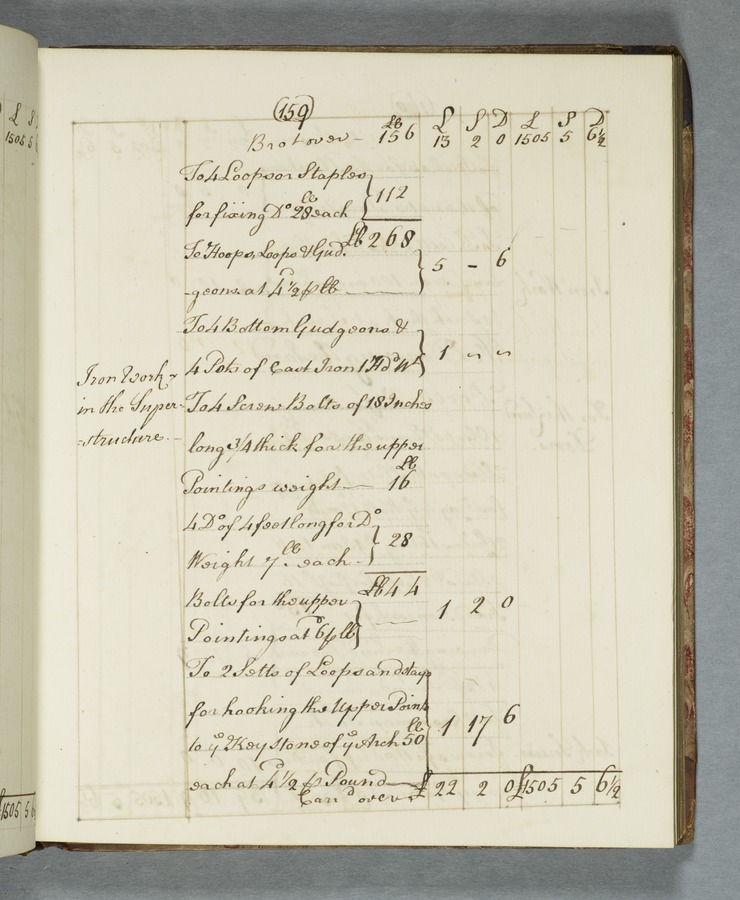 (159)
lb £ S D £ S D
Bro.t over 156 13 2 0 1505 5 6½
To 4 Loops or Staples
for fixing D.o 28 lb each } 112
lb 268
To Hoops, Loops & Gud.
-geons at 4 d ½ ⅌ lb } 5 - 6
To 4 Bottom Gudgeons &
4 Pots of Cast Iron 1 Hd.d Wt. } 1 " "
Iron Work
in the Super-
=structure
To 4 Screw Bolts of 18 Inches
long 3/4 thick for the upper
Pointings weight lb 16
4 D.o of 4 feet long for D.o
Weight 7 lb each } 28
lb 44
Bolts for the upper
Pointings at 6 d ⅌ lb } 1 2 0
To 2 Setts of Loops and stays
for hooking the Upper Points
to y.e 2 Key stone of y.e Arch 50 lb 1 17 6
each at 4 d ½ ⅌ Pound
Carr.d over £ 22 2 0 £ 1505 5 6½
£ S D
1505 5
£ 1505 5 6